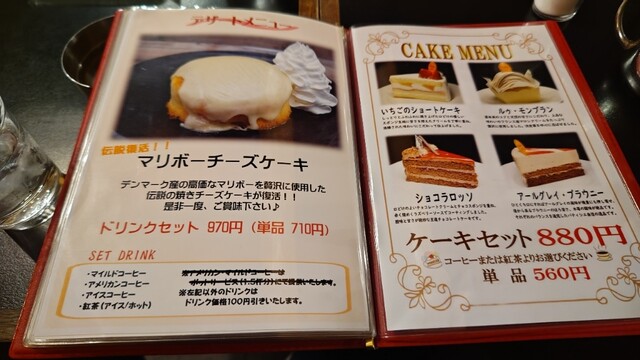 デザートメニュー
伝説復活！！
マリボーチーズケーキ
デンマーク産の高価なマリボーを贅沢に使用した
伝説の焼きチーズケーキが復活！！
是非一度、ご賞味下さい♪
ドリンクセット 970円 (単品 710円)
SET DRINK
・マイルドコーヒー
・アメリカンコーヒー
・アイスコーヒー
・紅茶(アイス/ホット)
※アメリカン・マイルドコーヒーは
ポットサービス(1.5杯分)にて提供いたします。
※左記以外のドリンクは
ドリンク価格100円引きいたします。
CAKE MENU
いちごのショートケーキ
ルゥ・モンブラン
ショコラロッソ
アールグレイ・ブラウニー
ケーキセット 880円
コーヒーまたは紅茶よりお選びください
単品 560円